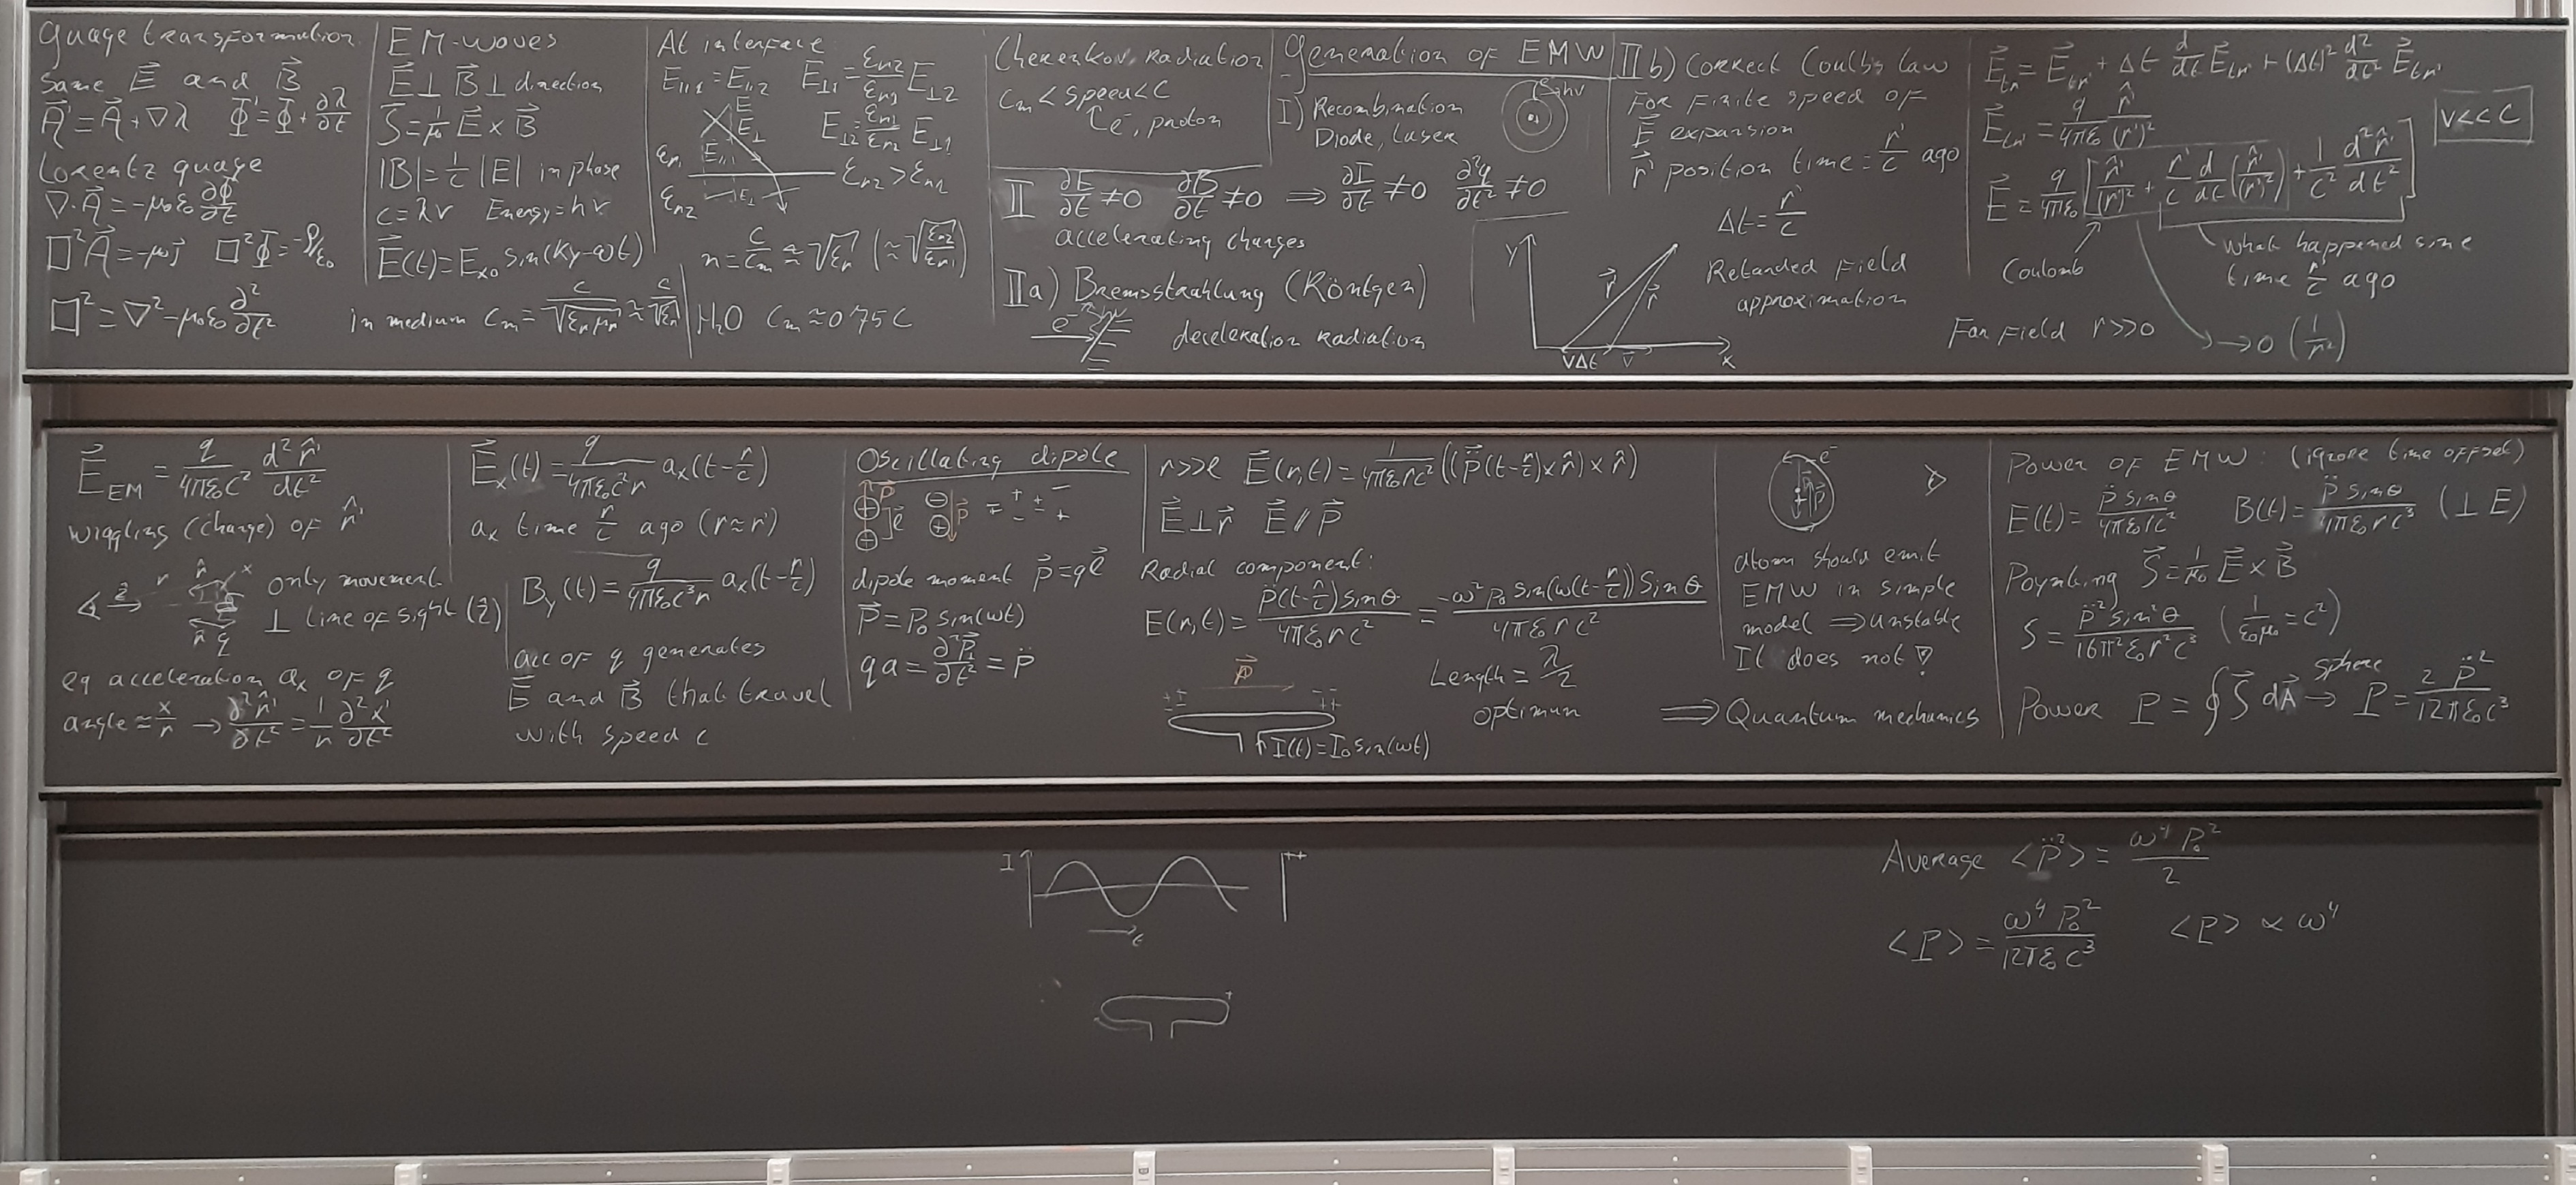 Guage transformation
Same E⃗ and B⃗
A⃗' = A⃗ + ∇λ   Φ' = Φ + ∂λ/∂t
Lorentz guage
∇·A⃗ = -μ₀ε₀ ∂Φ/∂t
□²A⃗ = -μ₀j⃗   □²Φ = -ρ/ε₀
□² = ∇² - μ₀ε₀ ∂²/∂t²
EM-waves
E⃗ ⊥ B⃗ ⊥ direction
S⃗ = 1/μ₀ E⃗ × B⃗
|B| = 1/c |E| in phase
c = λν   Energy = hν
E⃗(t) = Eₓ₀ sin(ky-ωt)
in medium cₘ = c/√(εᵣμᵣ) ≈ c/√εᵣ
At interface
E∥₁ = E∥₂   E⊥₁ = εr2/εr1 E⊥₂
E⊥₂ = εr1/εr2 E⊥₁
E
E⊥
E∥
εr1
εr2 > εr1
εr2
E⊥
n = c/cₘ ≈ √εᵣ (≈ √(εr2/εr1))
H₂O cₘ ≈ 0.75 c
Cherenkov radiation
cₘ < speed < c
e⁻, proton
Generation of EMW
I) Recombination
Diode, Laser
hν
II ∂E/∂t ≠ 0   ∂B/∂t ≠ 0 ⟹ ∂I/∂t ≠ 0   ∂²q/∂t² ≠ 0
accelerating charges
IIa) Bremsstrahlung (Röntgen)
e⁻
deceleration radiation
IIb) Correct Coulbs law
For finite speed of
E⃗ expansion
r⃗' position time = r'/c ago
Δt = r'/c
Retarded field
approximation
y
r⃗'
r⃗
vΔt
v⃗
x
E⃗tr = E⃗tr' + Δt d/dt E⃗tr' + (Δt)² d²/dt² E⃗tr'
E⃗tr' = q/4πε₀ r̂'/(r')²
v<<c
E⃗ = q/4πε₀ [r̂'/(r')² + r'/c d/dt (r̂'/(r')²) + 1/c² d²r̂'/dt²]
Coulomb
what happened sinc
time r/c ago
Far Field r>>0
→0 (1/r²)
E⃗EM = q/4πε₀c² d²r̂'/dt²
wiggling (change) of r̂'
ẑ
r
r̂
x
q
only movement
⊥ line of sight (ẑ)
eg acceleration aₓ of q
angle ≈ x/r → ∂²r̂'/∂t² = 1/r ∂²x'/∂t²
E⃗ₓ(t) = q/4πε₀c²r aₓ(t-r/c)
aₓ time r/c ago (r≈r')
By(t) = q/4πε₀c³r aₓ(t-r/c)
acc of q generates
E⃗ and B⃗ that travel
with speed c
Oscillating dipole
p⃗
ℓ⃗
p⃗
dipole moment p⃗ = qℓ⃗
p⃗ = p₀ sin(ωt)
qa = ∂²p⃗/∂t² = p̈
r>>ℓ E⃗(r,t) = 1/4πε₀rc² ((p̈⃗(t-r/c)×r̂)×r̂)
E⃗ ⊥ r⃗   E⃗ ∥ p⃗
Radial component:
E(r,t) = p̈(t-r/c) sinθ / 4πε₀rc² = -ω²p₀ sin(ω(t-r/c)) sinθ / 4πε₀rc²
p⃗
I(t) = I₀ sin(ωt)
Length = λ/2
optimum
e⁻
p⃗
atom should emit
EMW in simple
model ⟹ unstable
It does not!
⟹ Quantum mechanics
Power of EMW: (ignore time offset)
E(t) = p̈ sinθ / 4πε₀rc²   B(t) = p̈ sinθ / 4πε₀rc³ (⊥ E)
Poynting S⃗ = 1/μ₀ E⃗×B⃗
S = p̈² sin²θ / 16π²ε₀r²c³ (1/ε₀μ₀ = c²)
Power P = ∮S⃗ dA⃗ → sphere P = 2 p̈² / 12πε₀c³
I
t
++
+
Average <p̈²> = ω⁴p₀²/2
<P> = ω⁴p₀²/12πε₀c³   <P> ∝ ω⁴